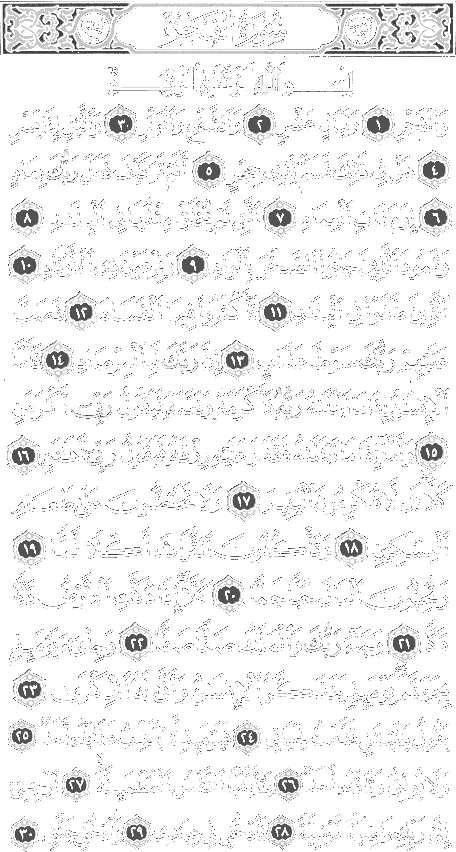 سُورَةُ الفَجْرِ
بِسْمِ اللَّهِ الرَّحْمَٰنِ الرَّحِيمِ
وَالْفَجْرِ ١ وَلَيَالٍ عَشْرٍ ٢ وَالشَّفْعِ وَالْوَتْرِ ٣ وَاللَّيْلِ إِذَا يَسْرِ
٤ هَلْ فِي ذَٰلِكَ قَسَمٌ لِّذِي حِجْرٍ ٥ أَلَمْ تَرَ كَيْفَ فَعَلَ رَبُّكَ بِعَادٍ
٦ إِرَمَ ذَاتِ الْعِمَادِ ٧ الَّتِي لَمْ يُخْلَقْ مِثْلُهَا فِي الْبِلَادِ ٨
وَثَمُودَ الَّذِينَ جَابُوا الصَّخْرَ بِالْوَادِ ٩ وَفِرْعَوْنَ ذِي الْأَوْتَادِ ١٠
الَّذِينَ طَغَوْا فِي الْبِلَادِ ١١ فَأَكْثَرُوا فِيهَا الْفَسَادَ ١٢ فَصَبَّ
عَلَيْهِمْ رَبُّكَ سَوْطَ عَذَابٍ ١٣ إِنَّ رَبَّكَ لَبِالْمِرْصَادِ ١٤ فَأَمَّا
الْإِنسَٰنُ إِذَا مَا ابْتَلَىٰهُ رَبُّهُ فَأَكْرَمَهُ وَنَعَّمَهُ فَيَقُولُ رَبِّي أَكْرَمَنِ
١٥ وَأَمَّا إِذَا مَا ابْتَلَىٰهُ فَقَدَرَ عَلَيْهِ رِزْقَهُ فَيَقُولُ رَبِّي أَهَٰنَنِ ١٦
كَلَّا بَل لَّا تُكْرِمُونَ الْيَتِيمَ ١٧ وَلَا تَحَٰضُّونَ عَلَىٰ طَعَامِ
الْمِسْكِينِ ١٨ وَتَأْكُلُونَ التُّرَاثَ أَكْلًا لَّمًّا ١٩
وَتُحِبُّونَ الْمَالَ حُبًّا جَمًّا ٢٠ كَلَّا إِذَا دُكَّتِ الْأَرْضُ دَكًّا
دَكًّا ٢١ وَجَاءَ رَبُّكَ وَالْمَلَكُ صَفًّا صَفًّا ٢٢ وَجِاْيءَ يَوْمَئِذٍ
بِجَهَنَّمَ يَوْمَئِذٍ يَتَذَكَّرُ الْإِنسَٰنُ وَأَنَّىٰ لَهُ الذِّكْرَىٰ ٢٣
يَقُولُ يَٰلَيْتَنِي قَدَّمْتُ لِحَيَاتِي ٢٤ فَيَوْمَئِذٍ لَّا يُعَذِّبُ عَذَابَهُ أَحَدٌ ٢٥
وَلَا يُوثِقُ وَثَاقَهُ أَحَدٌ ٢٦ يَٰأَيَّتُهَا النَّفْسُ الْمُطْمَئِنَّةُ ٢٧ ارْجِعِي
إِلَىٰ رَبِّكِ رَاضِيَةً مَّرْضِيَّةً ٢٨ فَادْخُلِي فِي عِبَٰدِي ٢٩ وَادْخُلِي جَنَّتِي ٣٠